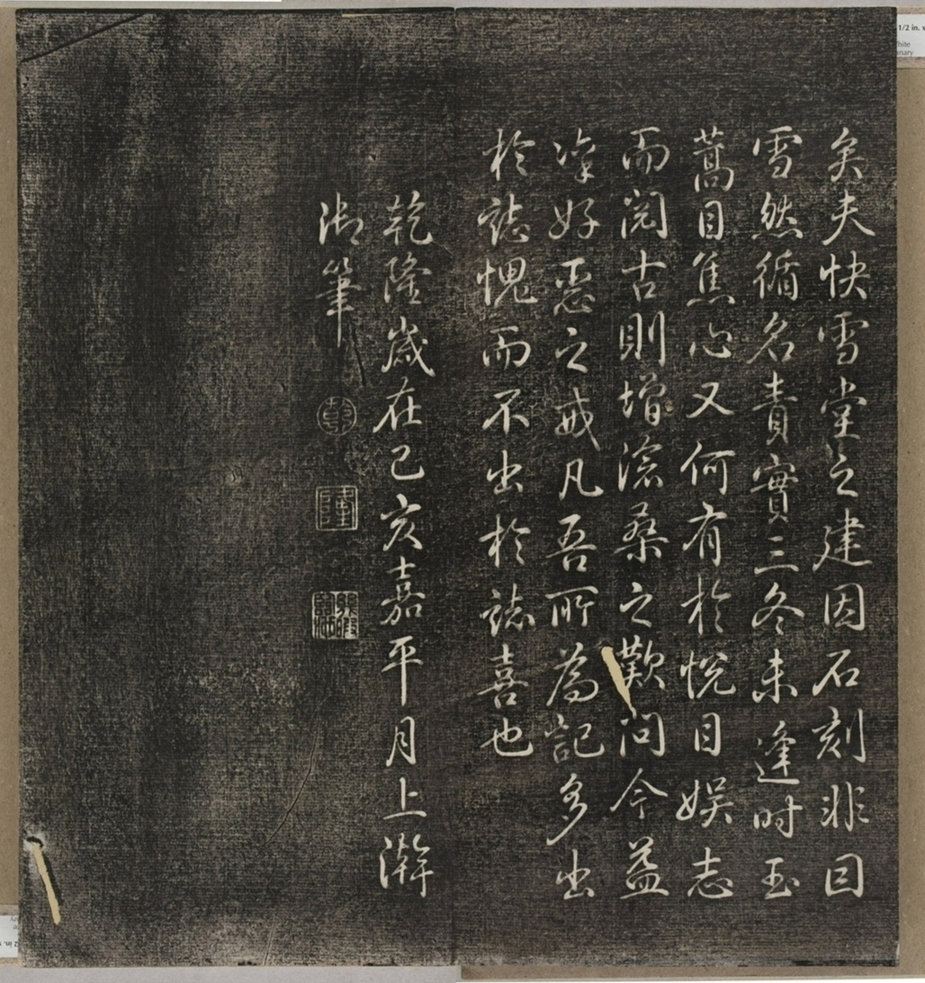 矣夫快雪堂之建因石刻非因
雪然循名責實三冬未逢時玉
蒿目焦心又何有於悅目娛志
而閱古則增滄桑之歎問今益
凜好惡之戒凡吾所為記多出
於誌愧而不出於誌喜也
乾隆歲在己亥嘉平月上澣
御筆
乾
隆
1/2 in.